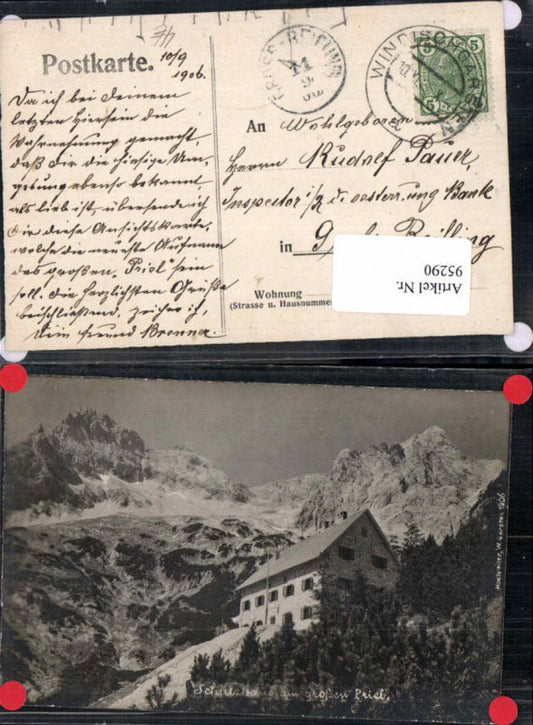 Postkarte.
10/9
1906.
Da ich bei Deinem
letzten Hiersein die
Wahrnehmung gemacht,
daß Dir die hiesige Um-
gebung ebenso bekannt,
als lieb ist, übersende ich
Dir diese Ansichtskarte,
welche die neueste Aufnahme
des großen "Priel" sein
soll. Die herzlichsten Grüße
beischließend, zeichne ich,
Dein Freund Brenner.
GROSS-REIFLING
11
9
WINDISCHGARSTEN
5 5
5 5
An Wohlgeboren
Herrn Rudolf Pauer,
Inspector i/R d. oesterr. ung Bank
in Reifling
Wohnung
(Strasse u. Hausnummer
Artikel Nr.
95290
Schutzhaus am großen Priel.
1906